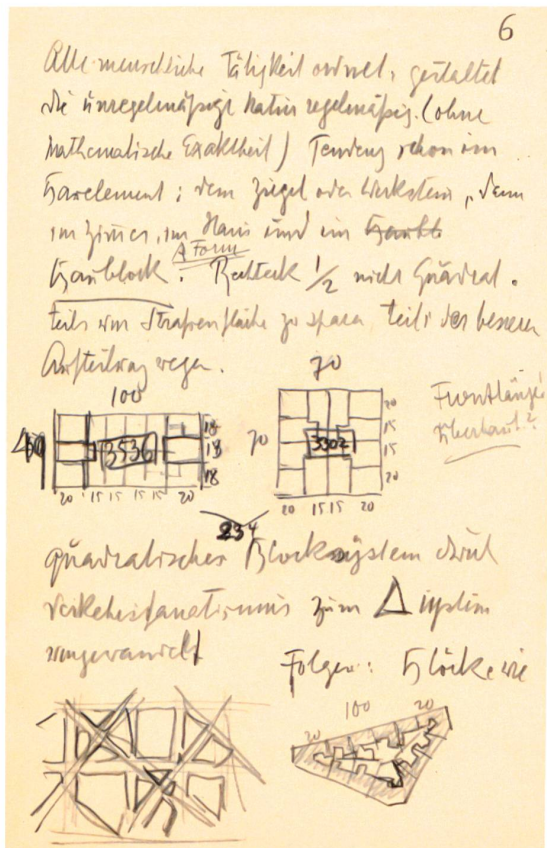 6
Alle menschliche Tätigkeit ordnet, gestaltet
die unregelmäßige Natur regelmäßig. (ohne
mathematische Exaktheit) Tendenz schon im
Bauelement; dem Ziegel oder Werkstein, dann
im Zimmer, im Haus und im
A Form
Baublock. Rechteck 1/2 nicht Quadrat.
teils um Straßenfläche zu sparen teils der besseren
Aufteilung wegen.
70
100
Frontlänge
überbaut?
3536
18
18
18
20 15 15 15 15 20
70
3302
20
15
15
20
20 15 15 20
234
quadratisches Blocksystem durch
Verkehrsfanatismus zum Δ system
umgewandelt
Folgen: Blöcke wie
100
20
20